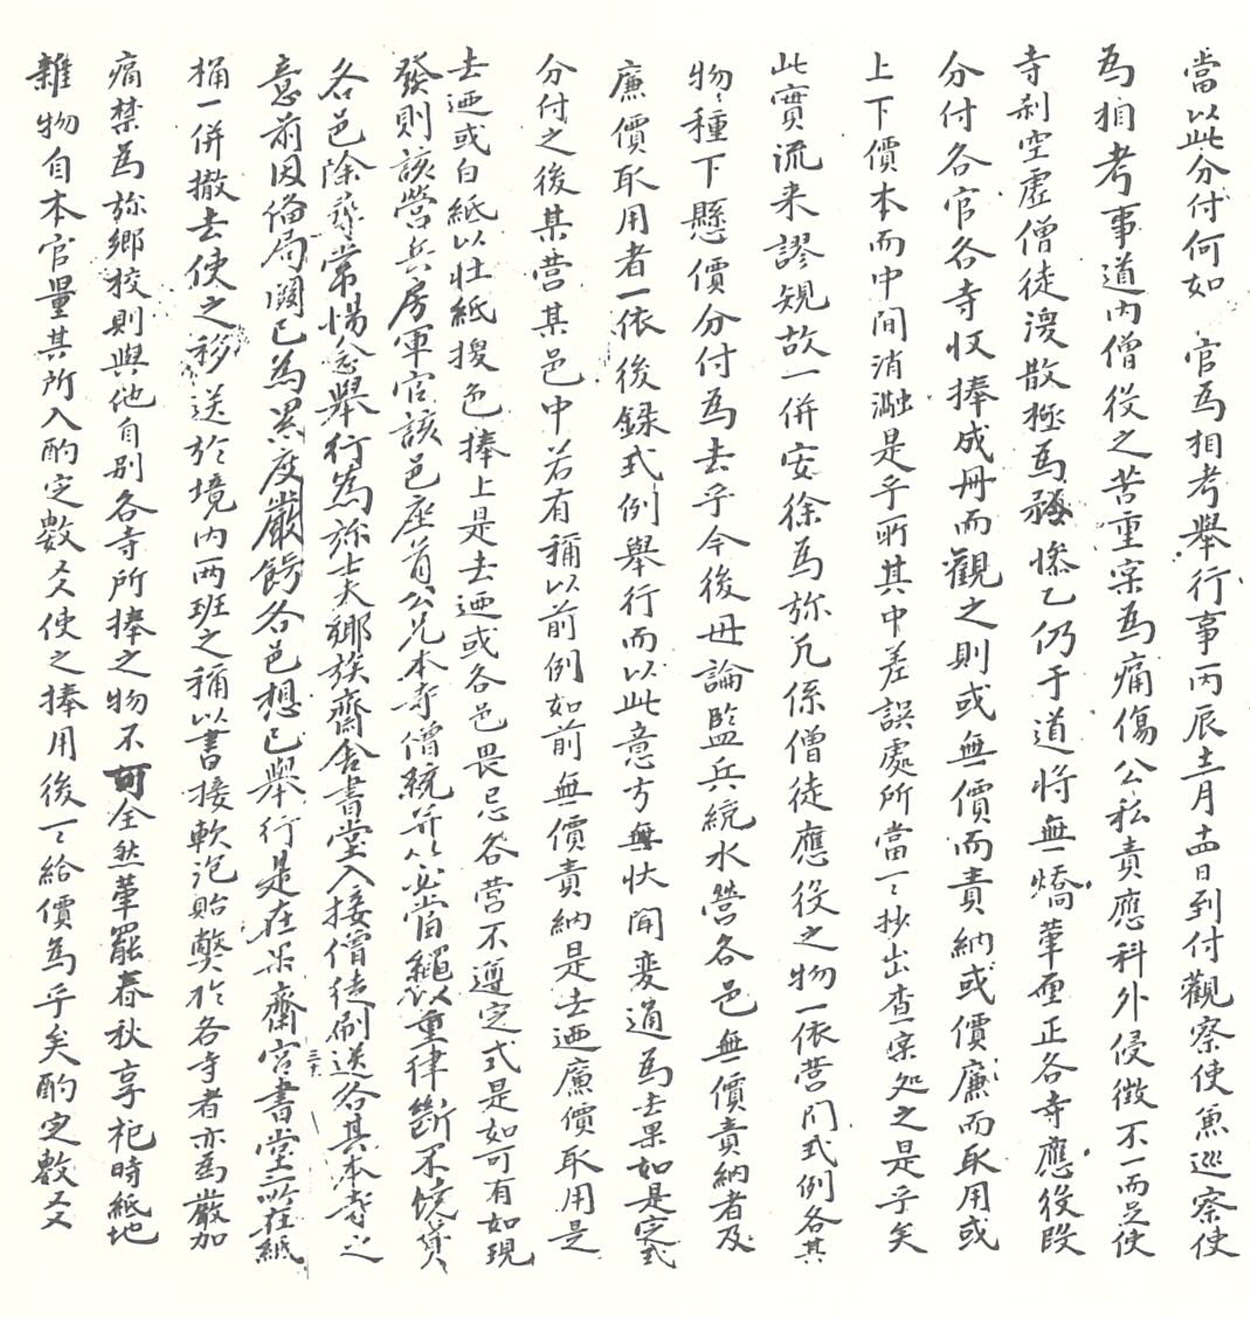 當以此分付何如 官爲相考擧行事丙辰土月十四日到付觀察使兼巡察使
爲相考事道內僧役之苦重寀爲痛傷公私責應科外侵徵不一而足使
寺刹空虛僧徒渙散極爲矜慘乙仍于道將無燆革厘正各寺應役段
分付各官各寺收捧成冊而觀之則或無價而責納或價廉而取用或
上下價本而中間消瀜是乎所其中差誤處所當一〻抄出查寀處之是乎矣
此實流来謬䂓故一倂安徐爲旀凢係僧徒應役之物一依營門式例各其
物〻種下懸價分付爲去乎今後毋論監兵統水營各邑無價責納者及
廉價取用者一依後録式例擧行而以此意方無狀聞変通爲去果如是定式
分付之後某營某邑中若有稱以前例如前無價責納是去迺廉價取用是
去迺或白紙以壮紙換色捧上是去迺或各邑畏忌各營不遵定式是如可有如現
發則該營兵房軍官該邑座首公兄本寺僧統并以必當繩以重律斷不饒貸
各邑除尋常惕念擧行爲旀士夫鄕族齋舍書堂入接僧徒刷送各其本寺之
意前因偹局關已爲累度嚴飭各邑想已擧行是在果齋宮書堂所在紙
桶一倂撤去使之移送於境內両班之稱以書接軟泡貽獘於各寺者亦爲嚴加
痛禁爲旀鄕校則與他自别各寺所捧之物不可全然革罷春秋享祀時紙地
雜物自本官量其所入酌定數爻使之捧用後一〻給價爲乎矣酌定數爻